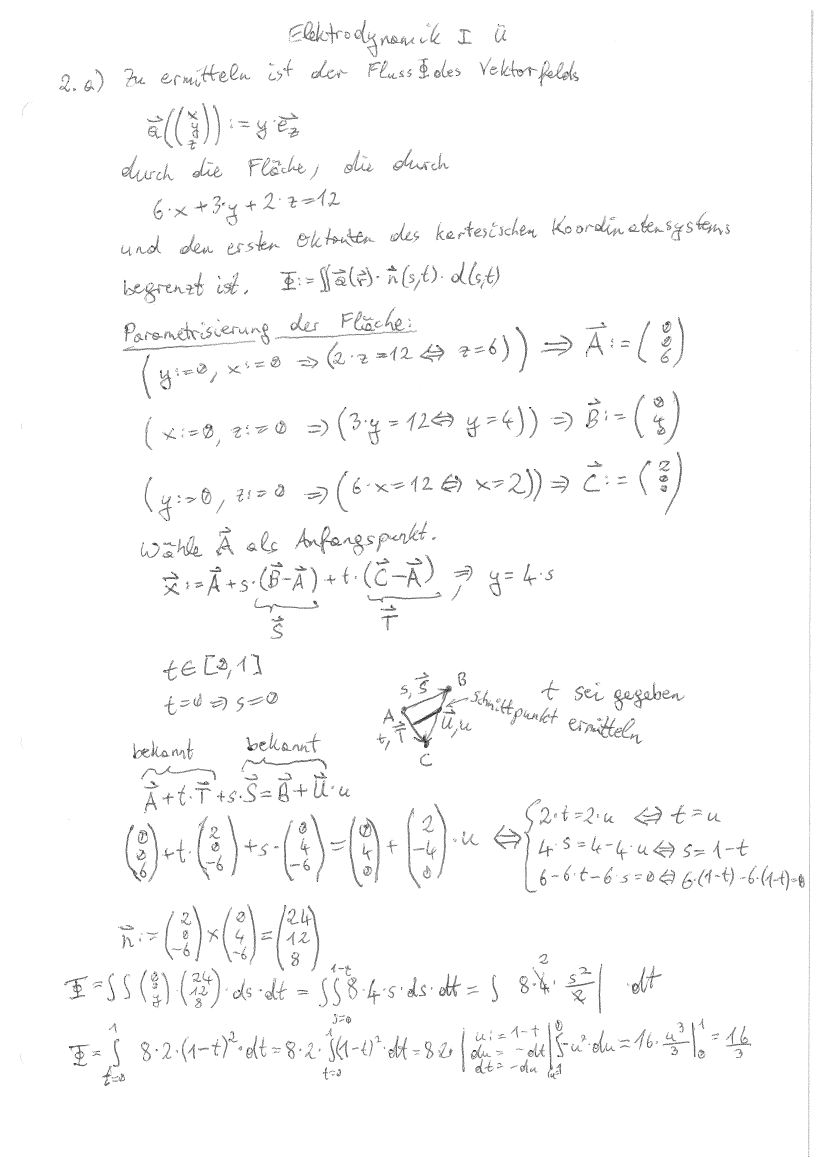 Elektrodynamik I Ü
2. a) Zu ermitteln ist der Fluss Φ des Vektorfelds
a⃗((x y z)) := y·e⃗_z
durch die Fläche, die durch
6·x+3·y+2·z=12
und den ersten Oktanten des kartesischen Koordinatensystems
begrenzt ist. Φ:=∬a⃗(r⃗)·n⃗(s,t)·d(s,t)
Parametrisierung der Fläche:
(y:=0, x:=0 ⇒ (2·z=12 ⇔ z=6)) ⇒ A⃗:=(0 0 6)
(x:=0, z:=0 ⇒ (3·y=12 ⇔ y=4)) ⇒ B⃗:=(0 4 0)
(y:=0, z:=0 ⇒ (6·x=12 ⇔ x=2)) ⇒ C⃗:=(2 0 0)
Wähle A⃗ als Anfangspunkt.
x⃗:=A⃗+s·(B⃗-A⃗)+t·(C⃗-A⃗), ⇒ y=4·s
S⃗ T⃗
t∈[0,1]
t=0⇒s=0
s,S⃗ B
A
t,T⃗
U⃗,u
C
Schnittpunkt ermitteln
t sei gegeben
bekannt bekannt
A⃗+t·T⃗+s·S⃗=B⃗+U⃗·u
(0 0 6)+t·(2 0 -6)+s·(0 4 -6)=(0 4 0)+(2 -4 0)·u ⇔ {2·t=2·u ⇔ t=u
4·s=4-4·u ⇔ s=1-t
6-6·t-6·s=0 ⇔ 6·(1-t)-6·(1-t)=0
n⃗:=(2 0 -6)×(0 4 -6)=(24 12 8)
Φ=∫∫(0 0 y)(24 12 8)·ds·dt=∫∫_{s=0}^{1-t} 8·4·s·ds·dt=∫ 8·4·2 s²/2| ·dt
Φ=∫_{t=0}^{1} 8·2·(1-t)²·dt=8·2·∫_{t=0}^{1}(1-t)²·dt=8·2·|u:=1-t du=-dt dt=-du|∫_{u=1}^{0}-u²·du=16·u³/3|_0^1=16/3